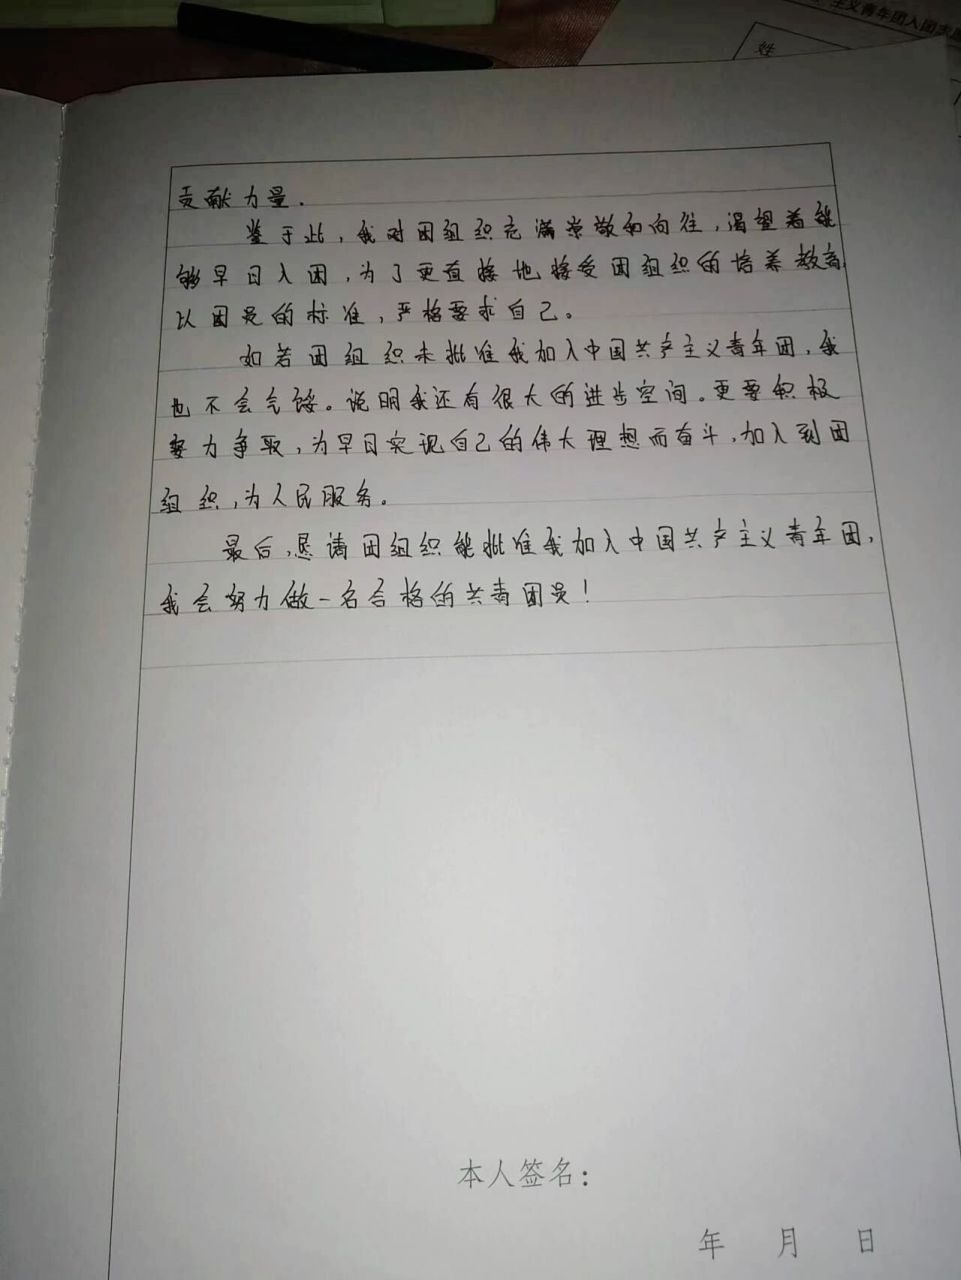 主义青年团入团志愿
姓
贡献力量.
鉴于此,我对团组织充满崇敬和向往,渴望着能
够早日入团,为了更直接地接受团组织的培养教育,
以团员的标准,严格要求自己。
如若团组织未批准我加入中国共产主义青年团,我
也不会气馁。说明我还有很大的进步空间。更要积极
努力争取,为早日实现自己的伟大理想而奋斗,加入到团
组织,为人民服务。
最后,恳请团组织能批准我加入中国共产主义青年团,
我会努力做一名合格的共青团员!
本人签名:
年 月 日